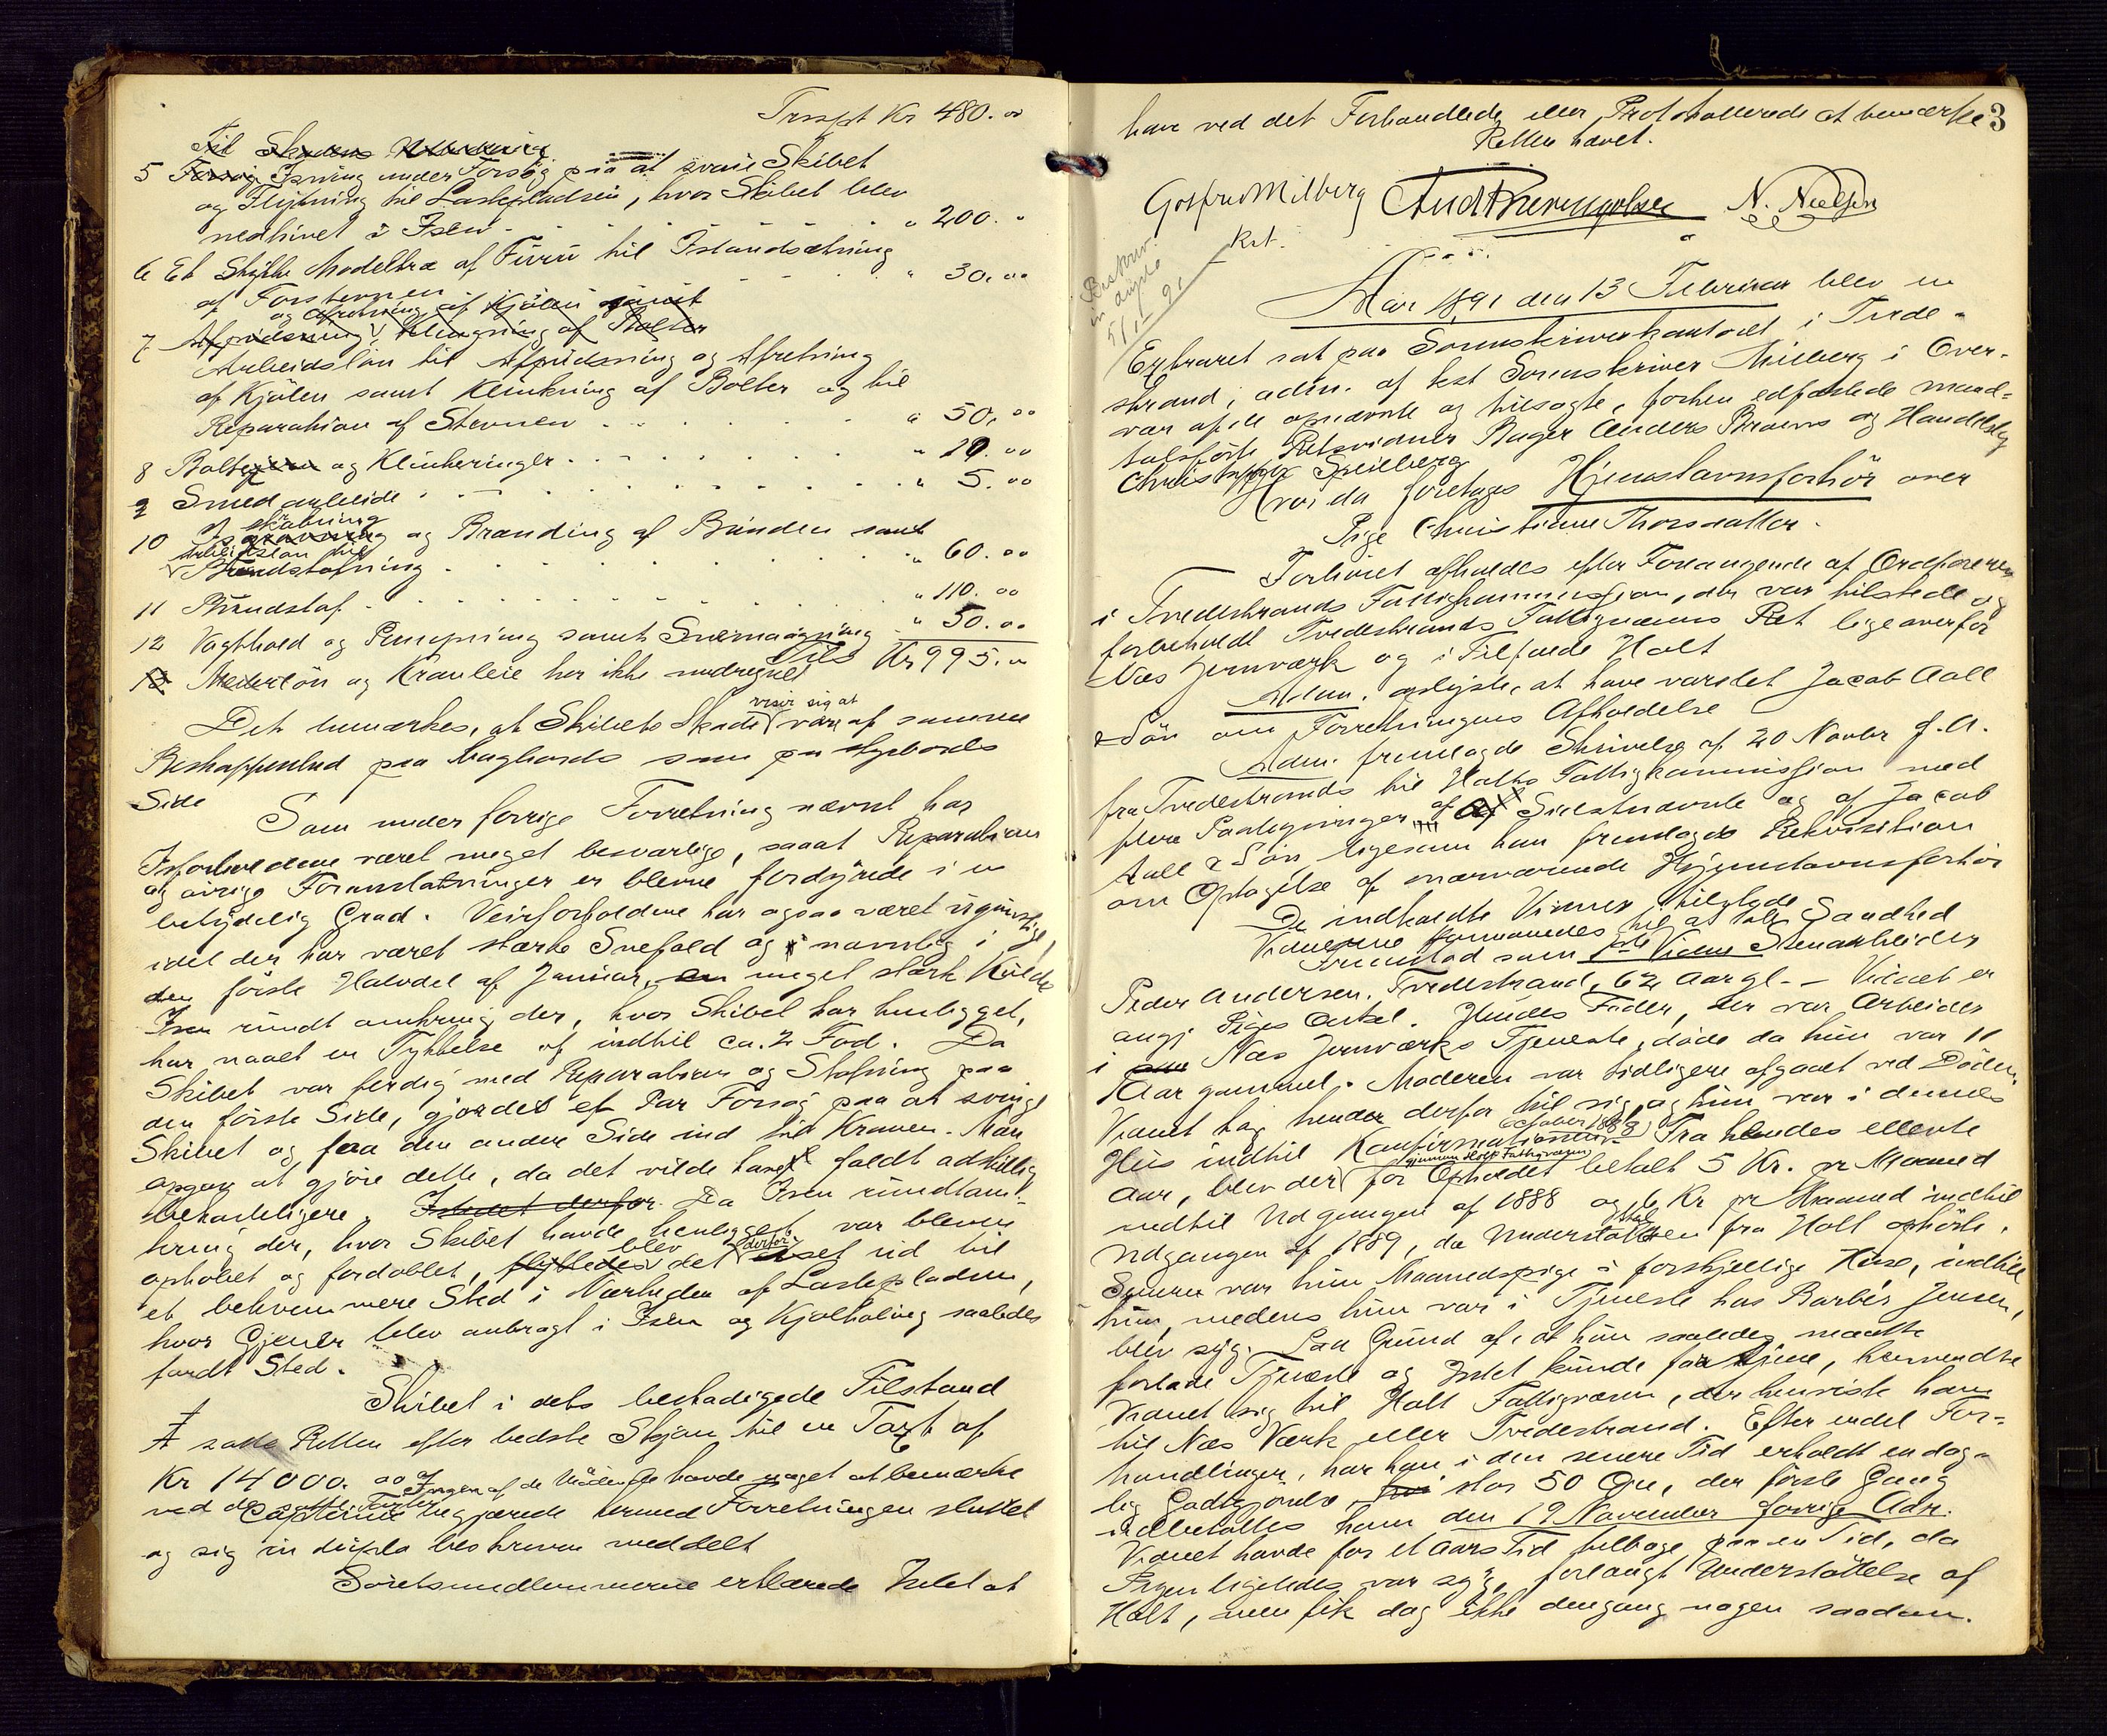 Trspt Kr 480.00
5 Isning under Forsøg paa at svaie Skibet
og Flytning til Lastepladsen, hvor Skibet blev
nedhivet i Isen " 200. "
6 Et Stykke Modeltræ af Furu til Istandsætning
af Forstevnen " 30.00
og Afretning af Kjølen samt
7 Afpudsning, Klingning af Bolter
Arbeidsløn til Afpudsning og Afretning
af Kjølen samt Klinkning af Bolter og til
Reparation af Stevnen " 50.00
8 Bolte og Klinkeringer " 10.00
9 Smedarbeide " 5.00
10 Skrabning og Brænding af Bunden samt
Arbeidsløn til
Bundstofning " 60.00
11 Bundstof " 110.00
12 Vagthold og Pumpning samt Snemaagning " 50.00
Tils Kr 995."
Mesterløn og Kranleie her ikke medregnet
Det bemærkes, at Skibets Skade viser sig at være af samme
Beskaffenhed paa Bagbords som paa Styrbords
Side
Som under forrige Forretning nævnt har
Isforholdene været meget besværlige, saaat Reparationen
og øvrige Foranstaltninger er blevne fordyrede i en
betydelig Grad. Veirforholdene har ogsaa været ugunstige,
idet der har været stærke Snefald og navnlig i
den første Halvdel af Januar meget stærk Kulde
Isen rundt omkring der, hvor Skibet har henligget,
har naaet en Tykkelse af indtil ca. 2 Fod. Da
Skibet var færdig med Reparation og Stofning paa
den første Side, gjordes et Par Forsøg paa at svinge
Skibet og faa den anden Side ind til Kranen. Man
opgav at gjøre dette, da det vilde have faldt adskillig
bekosteligere. Istedet derfor Da Isen rundtom-
kring der, hvor Skibet havde henligget, var bleven
ophobet og fordoblet, blev det derfor iset ud til
et bekvemmere Sted i Nærheden af Lastepladsen,
hvor Gjenler blev anbragt i Isen og Kjølhaling saaledes
fandt Sted.
Skibet i dets beskadigede Tilstand
satte Retten efter bedste Skjøn til en Taxt af
Kr 14000.00 Ingen af de Mødende havde noget at bemærke
ved de satte Taxter
Captainen begjærede hermed Forretningen sluttet
og sig in duplo beskreven meddelt
Søretsmedlemmerne erklærede Intet at
3
have ved det Forhandlede eller Protokollerede at bemærke
Retten hævet.
Gotfred Milberg And Thereugolsen N. Nielsen
Ret.
Beskrev.
in duplo
5/2 - 91
Aar 1891 den 13 Februar blev en
Extraret sat paa Sorenskriverkontoret i Tvede-
strand, adm. af kst Sorenskriver Milberg i Over-
vær af de opnævnte og tilsagte, forhen edfæstede mand-
talsførte Retsvidner Bager Anders Broms og Handelsbg
Christopher Speilberg
Hvorda foretoges Hjemstavnsforhør over
Pige Christiane Thorsdatter.
Forhøret afholdes efter Forlangende af Ordføreren
i Tvedestrands Fattigkommission, der var tilstede og
forbeholdt Tvedestrands Fattigvæsens Ret ligeoverfor
Næs Jernværk og i Tilfælde Holt
Adm. oplyste, at have varslet Jacob Aall
& Søn om Forretningens Afholdelse
Adm. fremlagde Skrivelse af 20 Novbr f. A.
fra Tvedestrands til Holts Fattigkommission med
flere Paategninger af Sidstnævnte og af Jacob
Aall & Søn, ligesom han fremlagde Rekvisition
om Optagelse af nærværende Hjemstavnsforhør
De indkaldte Vidner tilstede
Vidnerne formanedes til at tale Sandhed
Fremstod som 1ste Vidne Stenarbeider
Peder Andersen. Tvedestrand, 62 Aar gl. - Vidnet er
angj Piges Onkel. Hendes Fader, der var Arbeider
i Næs Jernværks Tjeneste, døde da hun var 11
Aar gammel. Moderen var tidligere afgaaet ved Døden.
Vidnet tog hende derfor til sig, og hun var i dennes
Hus indtil Konfirmationen October 1888 Fra hendes ellevte
Aar, blev der gjennem Holt Fattigvæsen for Opholdet betalt 5 Kr. pr Maaned
indtil Udgangen af 1888 og 6 Kr pr Maaned indtil
Udgangen af 1889, da Understøttelsen fra Holt ophørte.
Senere var hun Maanedspige i forskjellige Huse, indtil
hun, medens hun var i Tjeneste hos Barber Jensen,
blev syg. Paa Grund af, at hun saaledes maatte
forlade Tjeneste og Intet kunde fortjene, henvendte
Vidnet sig til Holt Fattigvæsen, der henviste ham
til Næs Værk eller Tvedestrand. Efter endel For-
handlinger, har han i den senere Tid erholdt en dag-
lig Godtgjørelse, stor 50 Øre, der første Gang
udbetaltes ham den 19 November forrige Aar.
Vidnet havde for et Aars Tid tilbage, paa en Tid, da
Pigen ligeledes var syg, forlangt Understøttelse af
Holt, men fik dog ikke dengang nogen saadan.